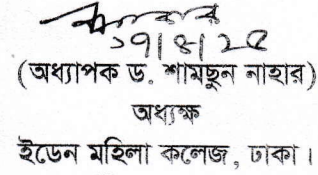 ১৭|৪|২৫
(অধ্যাপক ড. শামছুন নাহার)
অধ্যক্ষ
ইডেন মহিলা কলেজ, ঢাকা।